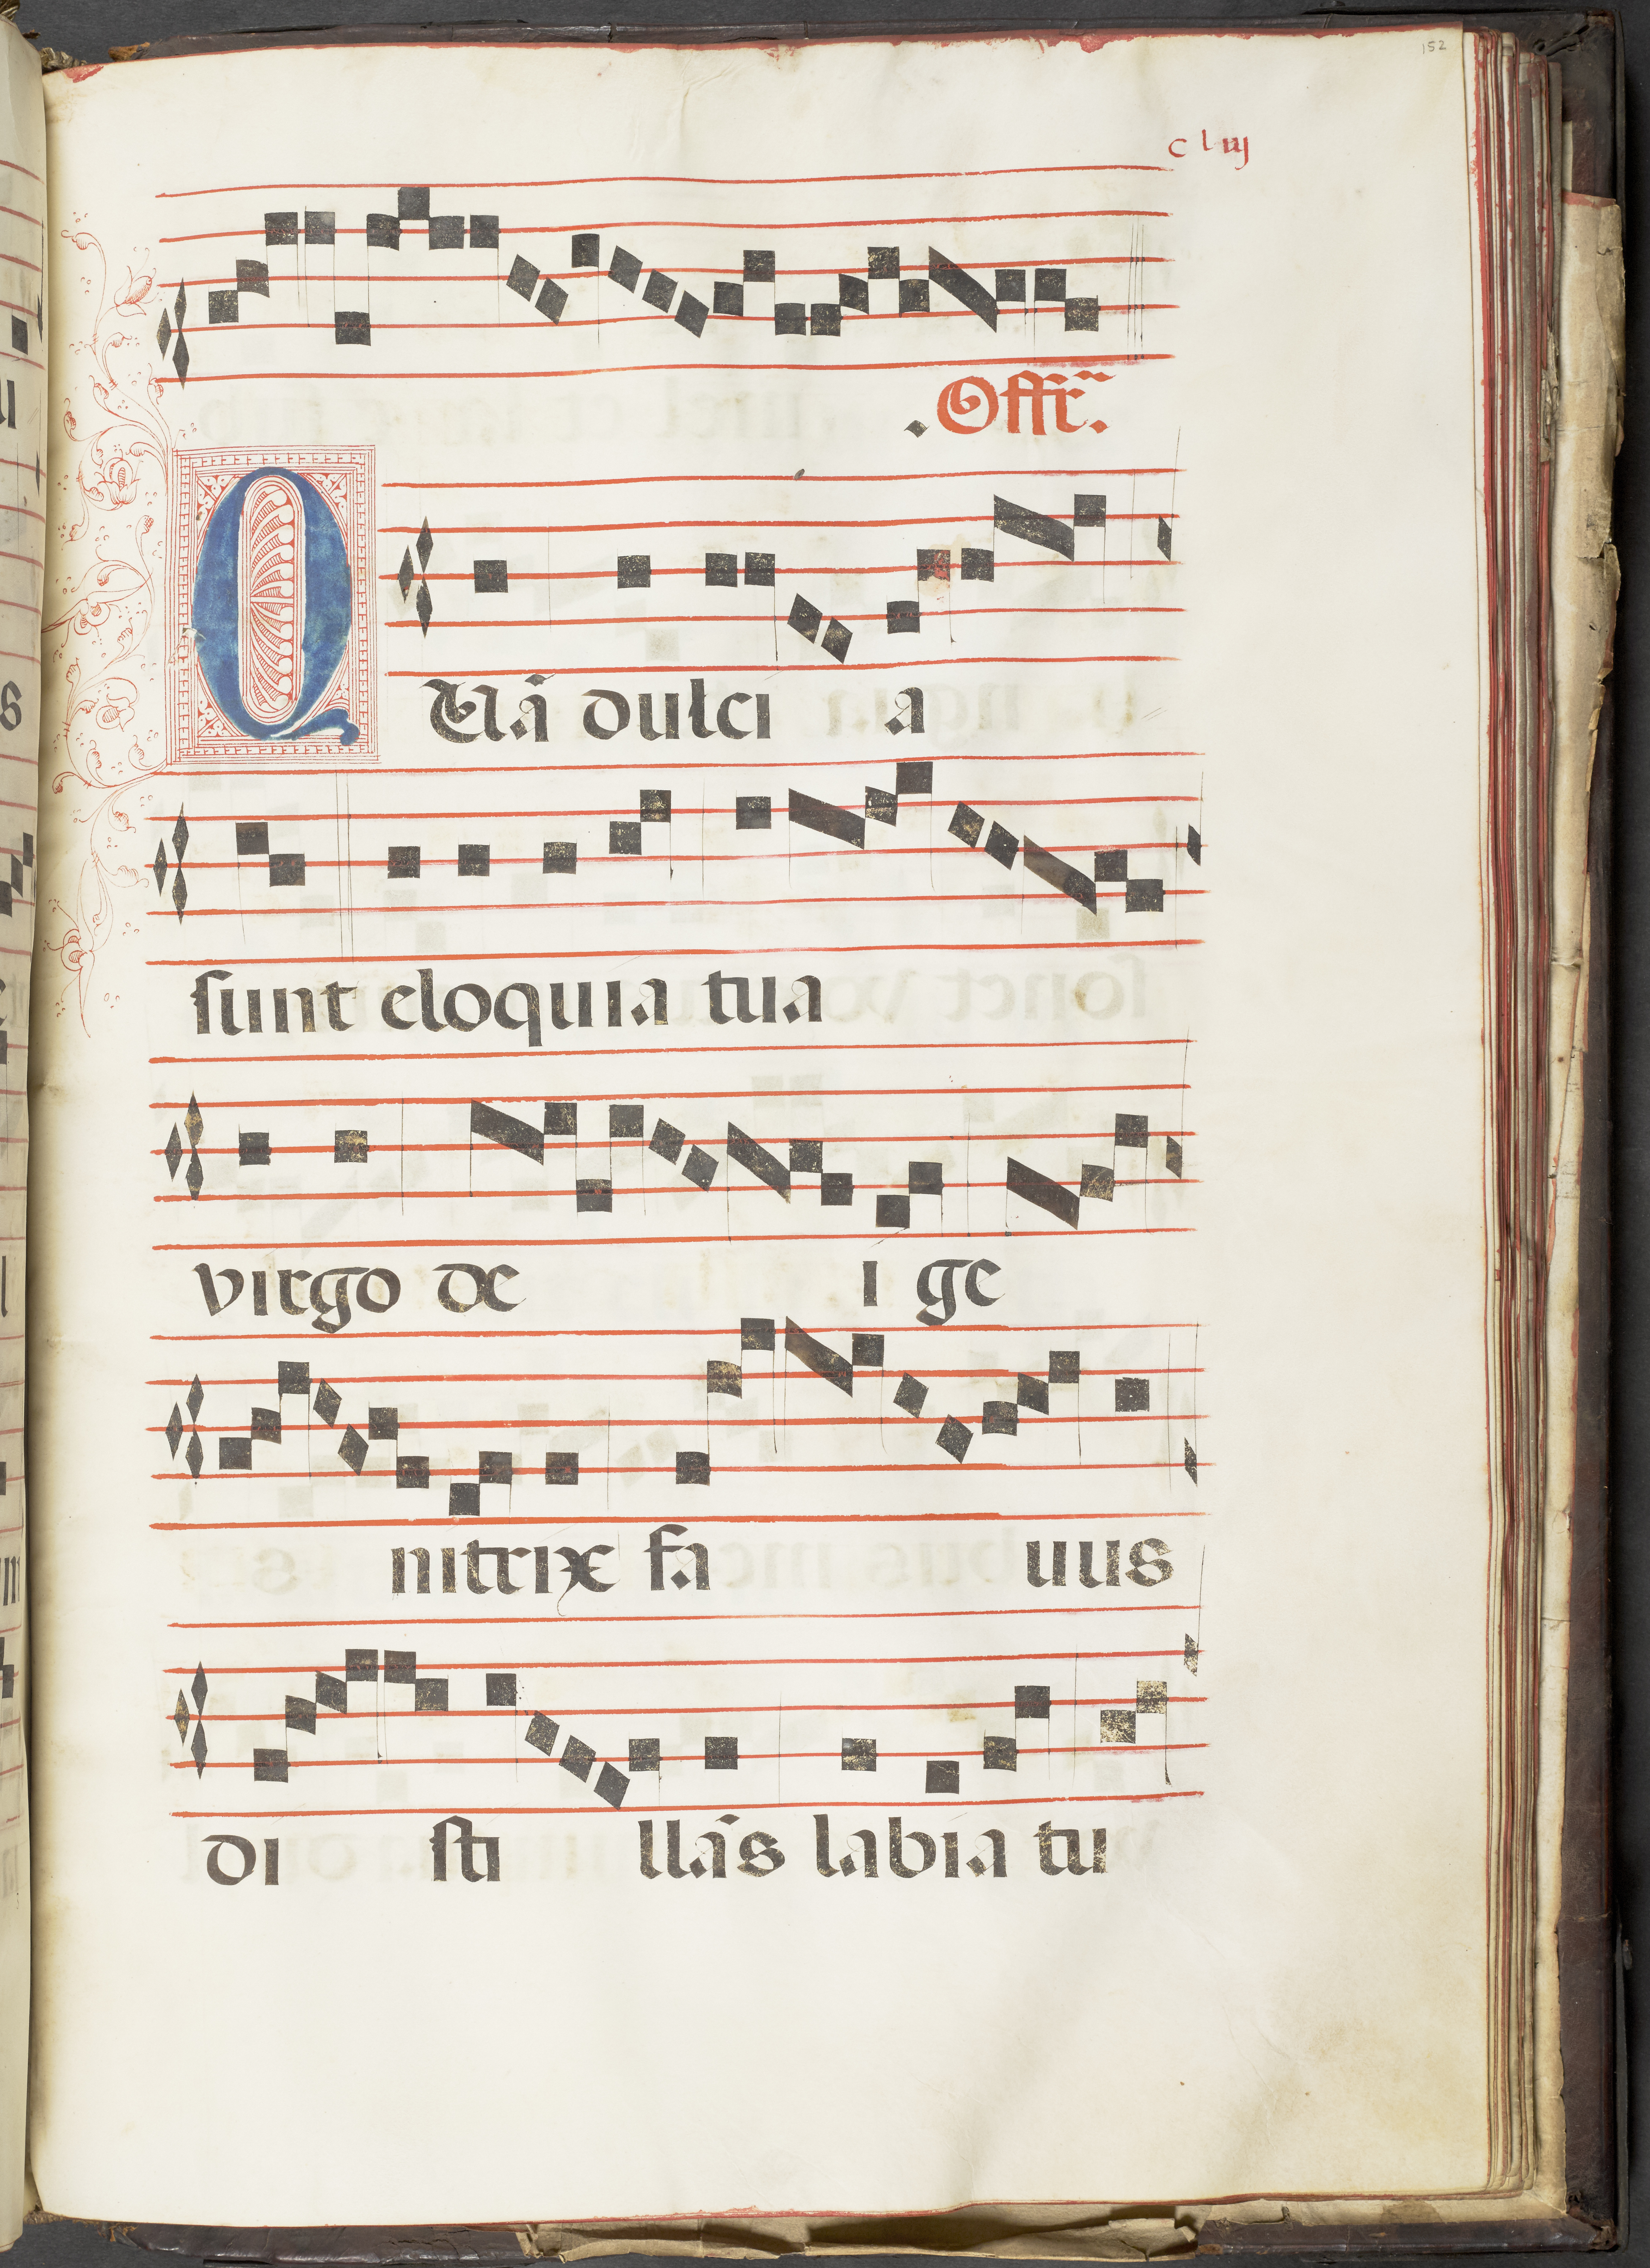 152
c l iij
Offr̃.
QUã dulci a
sunt eloquia tua
virgo de i ge
nitrix fa uus
di sti llãs labia tu